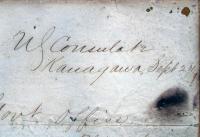 US Consulate
Kanagawa, Sept 2
Govt Office